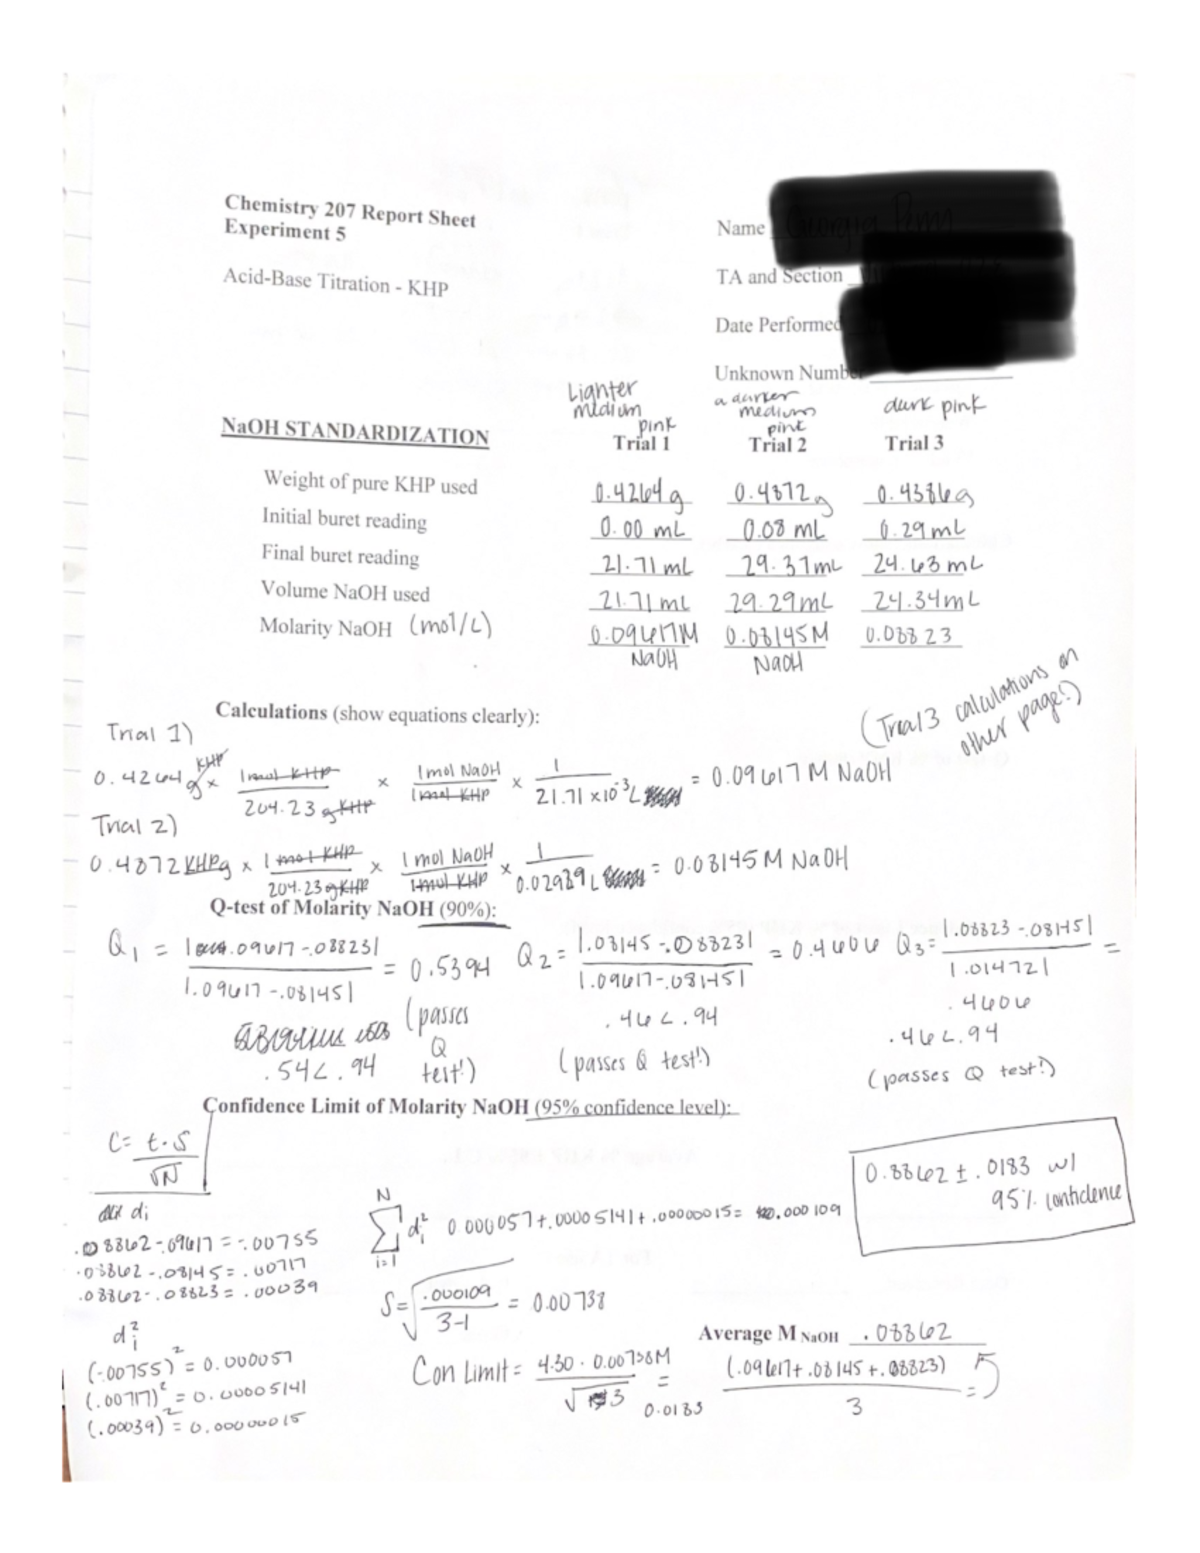 Chemistry 207 Report Sheet
Experiment 5
Acid-Base Titration - KHP
Name
TA and Section
Date Performed
Unknown Number
Lighter medium pink
a darker medium pink
dark pink
NaOH STANDARDIZATION
Trial 1 Trial 2 Trial 3
Weight of pure KHP used 0.4264 g 0.4872 g 0.4386 g
Initial buret reading 0.00 mL 0.08 mL 0.29 mL
Final buret reading 21.71 mL 29.37 mL 24.63 mL
Volume NaOH used 21.71 mL 29.29 mL 24.34 mL
Molarity NaOH (mol/L) 0.09617M NaOH 0.08145M NaOH 0.08823
Calculations (show equations clearly):
(Trial 3 calculations on other page!)
Trial 1)
0.4264 g KHP × 1 mol KHP / 204.23 g KHP × 1 mol NaOH / 1 mol KHP × 1 / 21.71 ×10⁻³ L = 0.09617 M NaOH
Trial 2)
0.4872 KHP g × 1 mol KHP / 204.23 g KHP × 1 mol NaOH / 1 mol KHP × 1 / 0.02929 L = 0.08145 M NaOH
Q-test of Molarity NaOH (90%):
Q₁ = |.09617-.08823| / |.09617-.08145| = 0.5394
.54 < .94
(passes Q test!)
Q₂ = |.08145-.088231 / |.09617-.08145| = 0.4606
.46 < .94
(passes Q test!)
Q₃ = |.08823-.08145| / |.01472| =
.4606
.46 < .94
(passes Q test!)
Confidence Limit of Molarity NaOH (95% confidence level):
C = t·S / √N
0.8862 ± .0183 w/
95% confidence
di
.08862-.09617 = -.00755
.08862-.08145 = .00717
.08862-.08823 = .00039
di²
(-.00755)² = 0.000057
(.00717)² = 0.00005141
(.00039)² = 0.00000015
N Σ i=1 di² 0.000057+.00005141+.00000015 = .000109
S = √ .000109 / 3-1 = 0.00738
Con Limit = 4.30 · 0.00738M / √3 = 0.0183
Average M NaOH .08862
(.09617+.08145+.08823) / 3 =